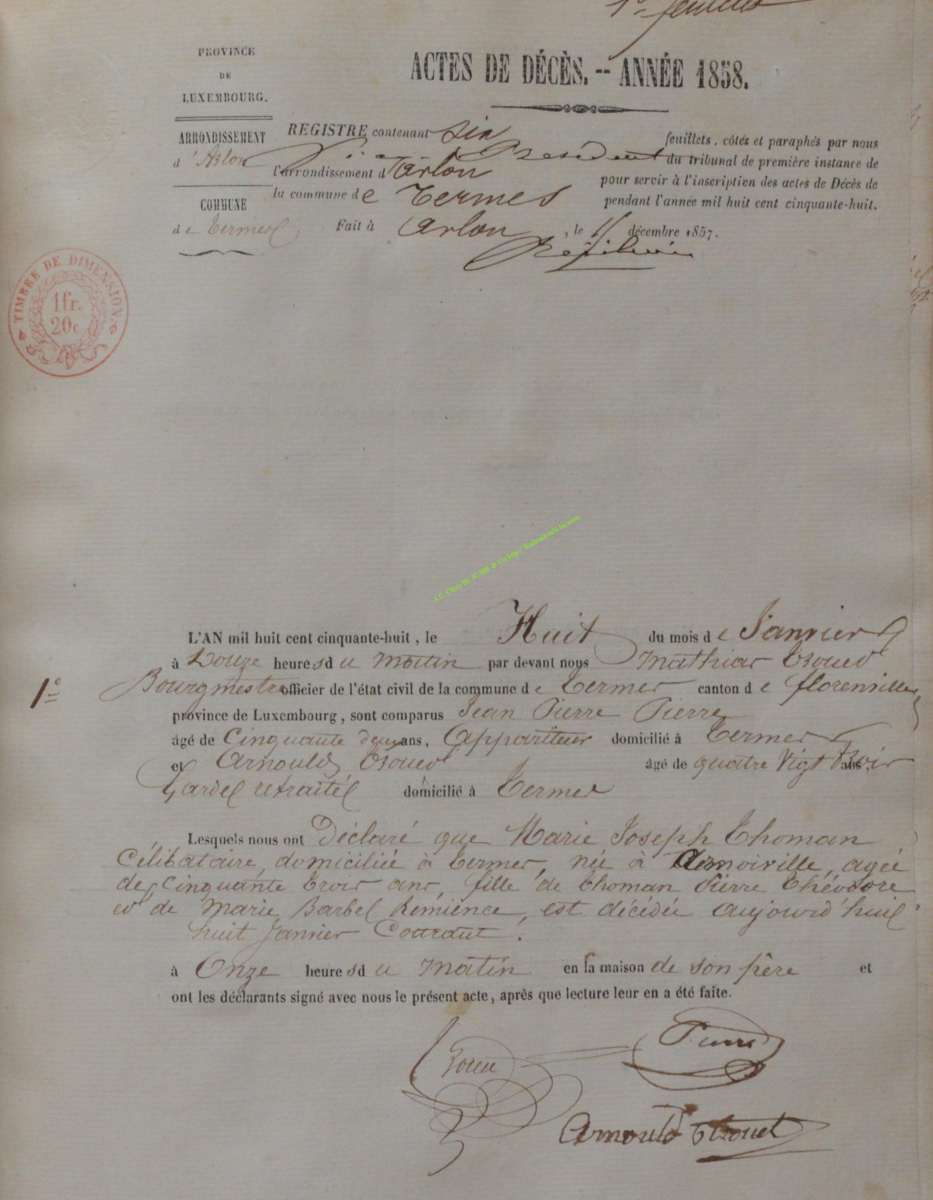 1er feuillet
PROVINCE
DE
LUXEMBOURG.
ARRONDISSEMENT
d'Arlon
COMMUNE
de Termes
ACTES DE DÉCÈS. -- ANNÉE 1858.
REGISTRE contenant six feuillets, côtés et paraphés par nous
Président du tribunal de première instance de
l'arrondissement d'Arlon pour servir à l'inscription des actes de Décès de
la commune de Termes pendant l'année mil huit cent cinquante-huit.
Fait à Arlon, le décembre 1857.
TIMBRE DE DIMENSION
1fr.
20c
L'AN mil huit cent cinquante-huit, le Huit du mois de Janvier
à Douze heures du Matin par devant nous Mathias
1°
Bourgmestre officier de l'état civil de la commune de Termes canton de florenville
province de Luxembourg, sont comparus Jean Pierre Pierre
âgé de Cinquante deux ans, Appariteur domicilié à Termes
et Arnould âgé de quatre Vigt trois ans
Garde retraité domicilié à Termes
Lesquels nous ont Déclaré que Marie Joseph Thoman
Célibataire, domiciliée à Termes, née à agée
de Cinquante Trois ans, fille de Thoman Pierre Théodore
et de Marie Barbe Remience, est décédée aujourd'hui
huit Janvier Courant.
à Onze heures du Matin en la maison de son père et
ont les déclarants signé avec nous le présent acte, après que lecture leur en a été faite.
Pierre
Arnould